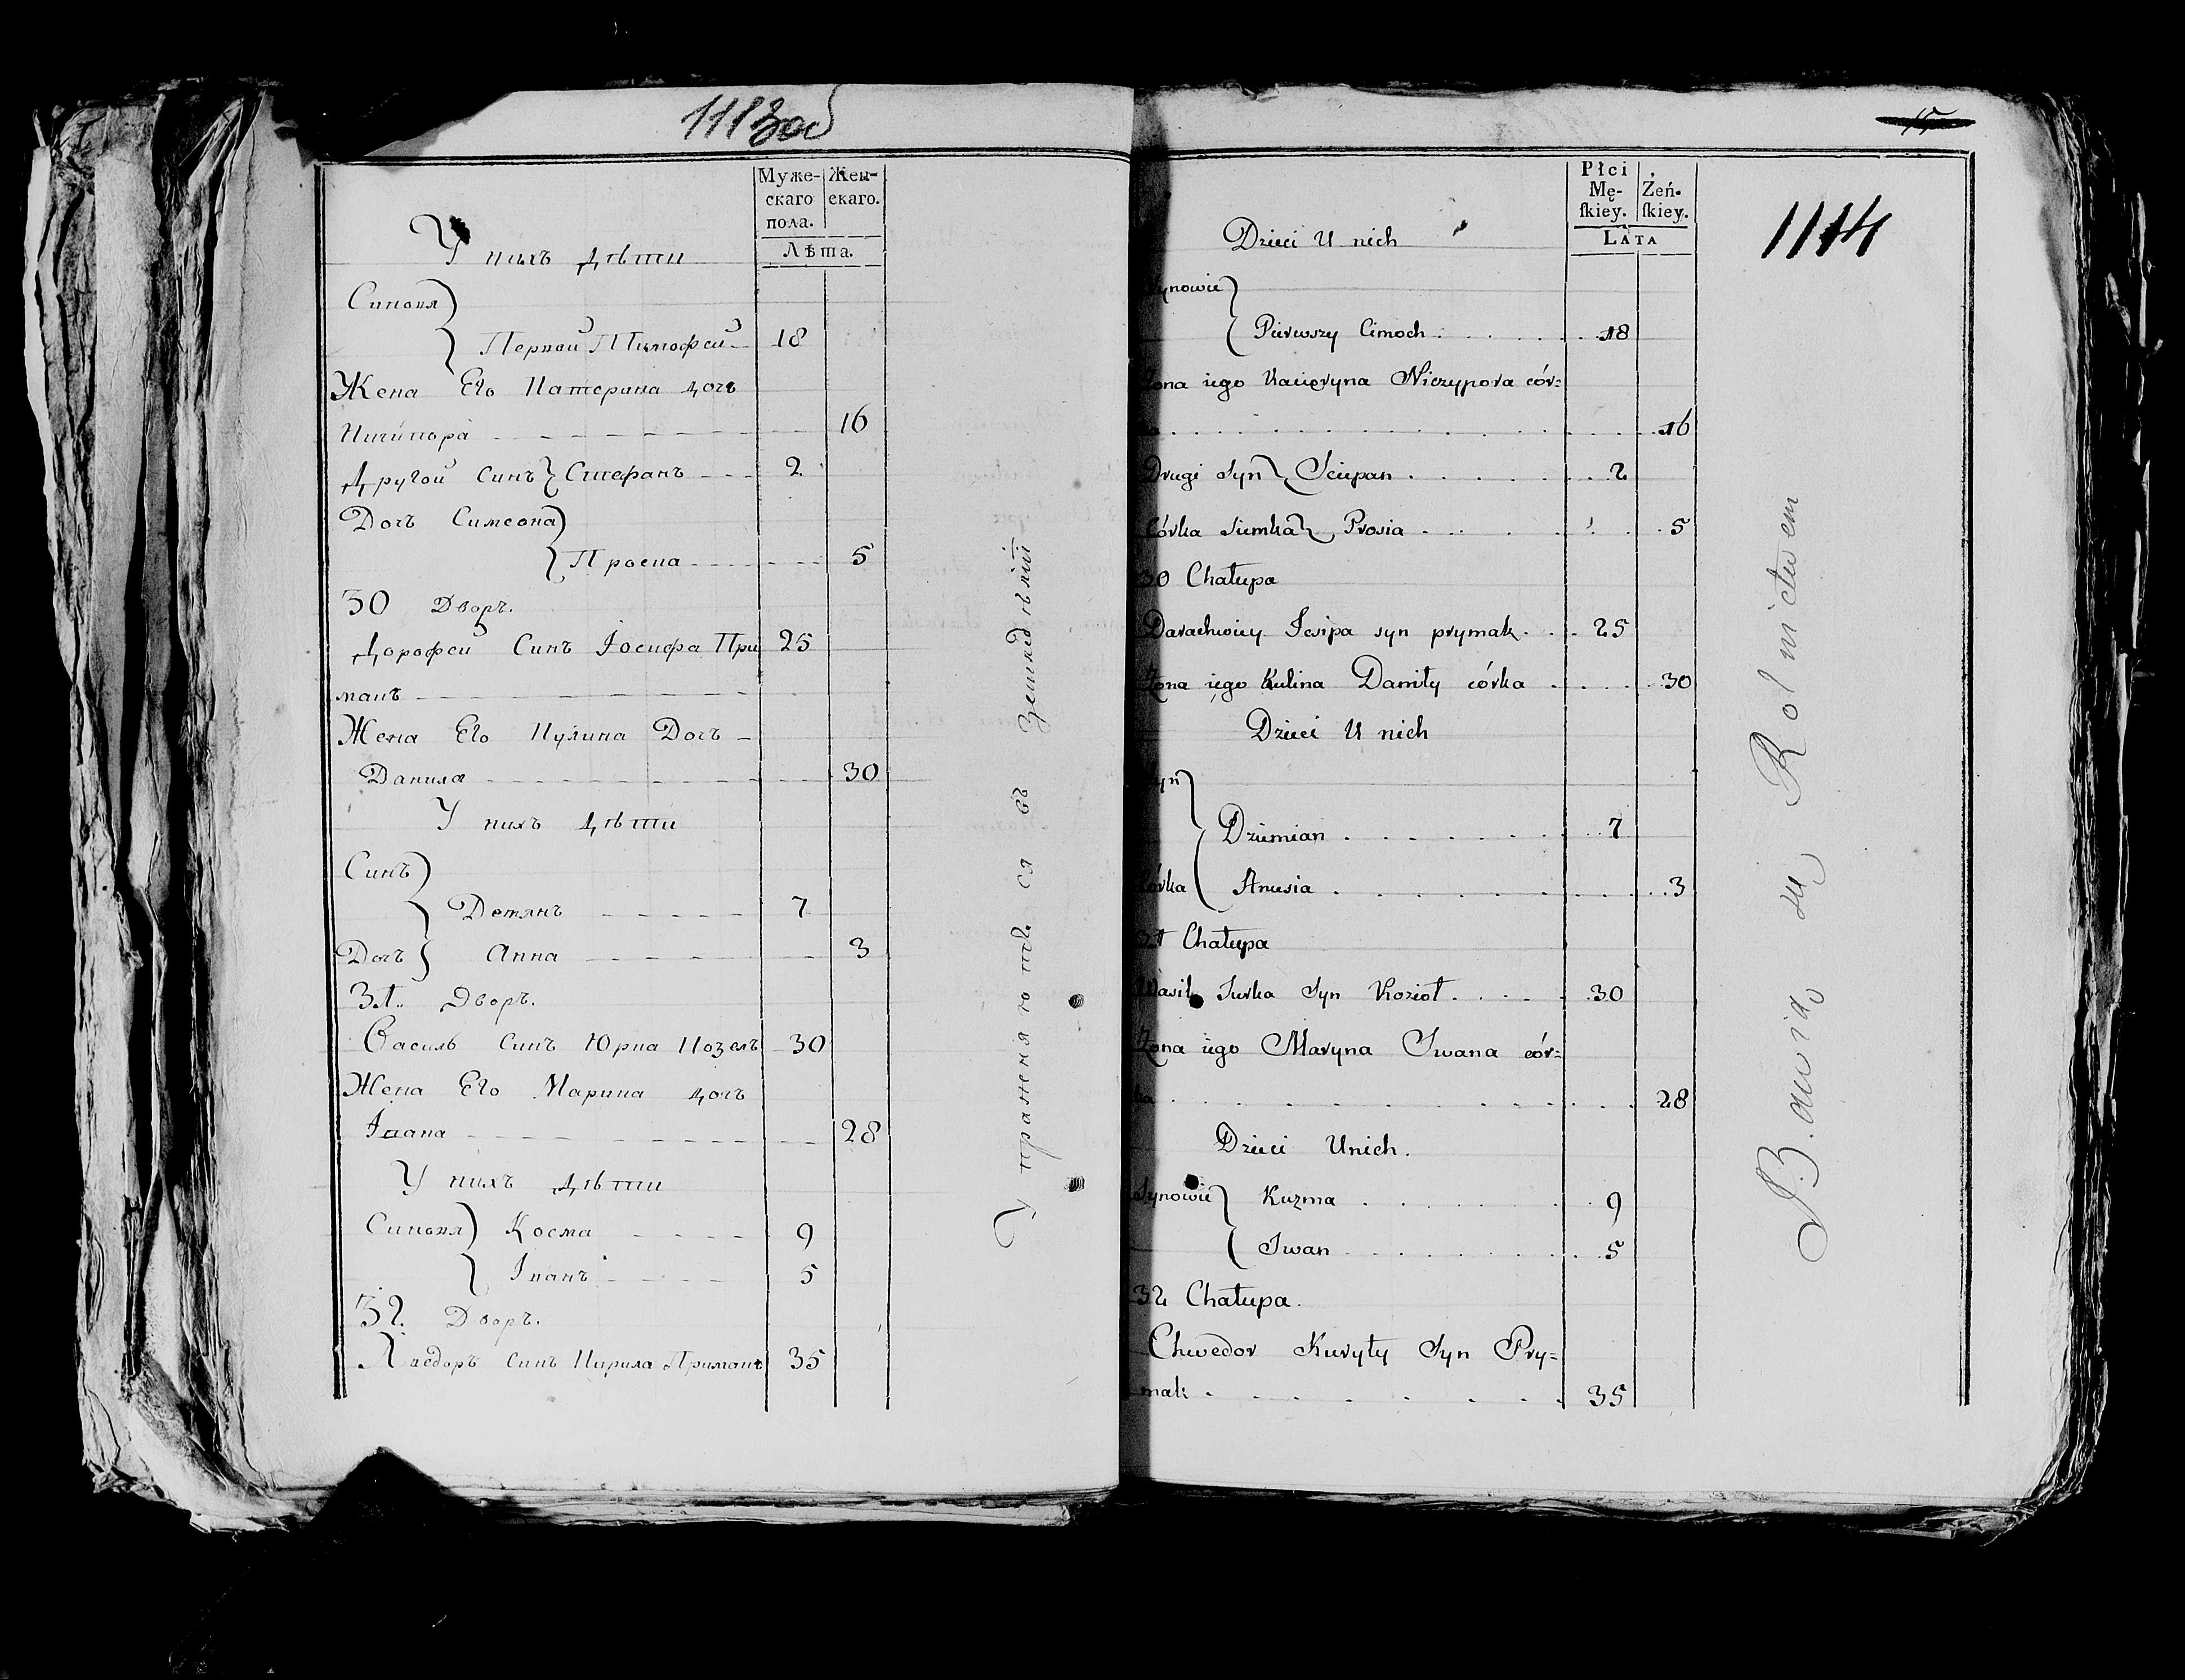 1113об
Муже-
скаго
пола.
Жен-
скаго.
Лѣта.
У нихъ дѣти
Синовя
Первой Тимофей 18
Жена Его Катерина дочъ
Ничипора 16
Другой синъ Стефанъ 2
Дочъ Симеона
Просиа 5
30 Дворъ.
Дорофей Синъ Іосифа При 25
макъ
Жена Его Кулина Дочъ
Данила 30
У нихъ дѣти
Синъ
Демянъ 7
Дочъ Анна 3
31. Дворъ.
Василь синъ Юрка Козелъ 30
Жена Его Марина дочъ
Івана 28
У нихъ дѣти
Синовя Косма 9
Іванъ 5
32. Дворъ.
Хведоръ синъ Кирила Примакъ 35
Упражняются въ Земледѣлїи
15
1114
Płci
Mę-
ſkiey.
Żeń-
ſkiey.
LATA
Dzieci U nich
Synowie
Pierwszy Cimoch 18
Żona iego Kacieryna Niczypora cór=
ka 16
Drugi Syn Sciepan 2
Córka Siemka Prosia 5
30 Chałupa
Darachwiey Iesipa syn prymak 25
Żona iego Kulina Daniły córka 30
Dzieci U nich
Syn
Dziemian 7
Córka Anusia 3
31 Chałupa
Wasil Jurka Syn Kozioł 30
Żona iego Maryna Iwana cór=
ka 28
Dzieci Unich.
Synowie Kuzma 9
Iwan 5
32 Chałupa.
Chwedor Kuryły Syn Pry=
mak 35
Bawią się Rolnictwem